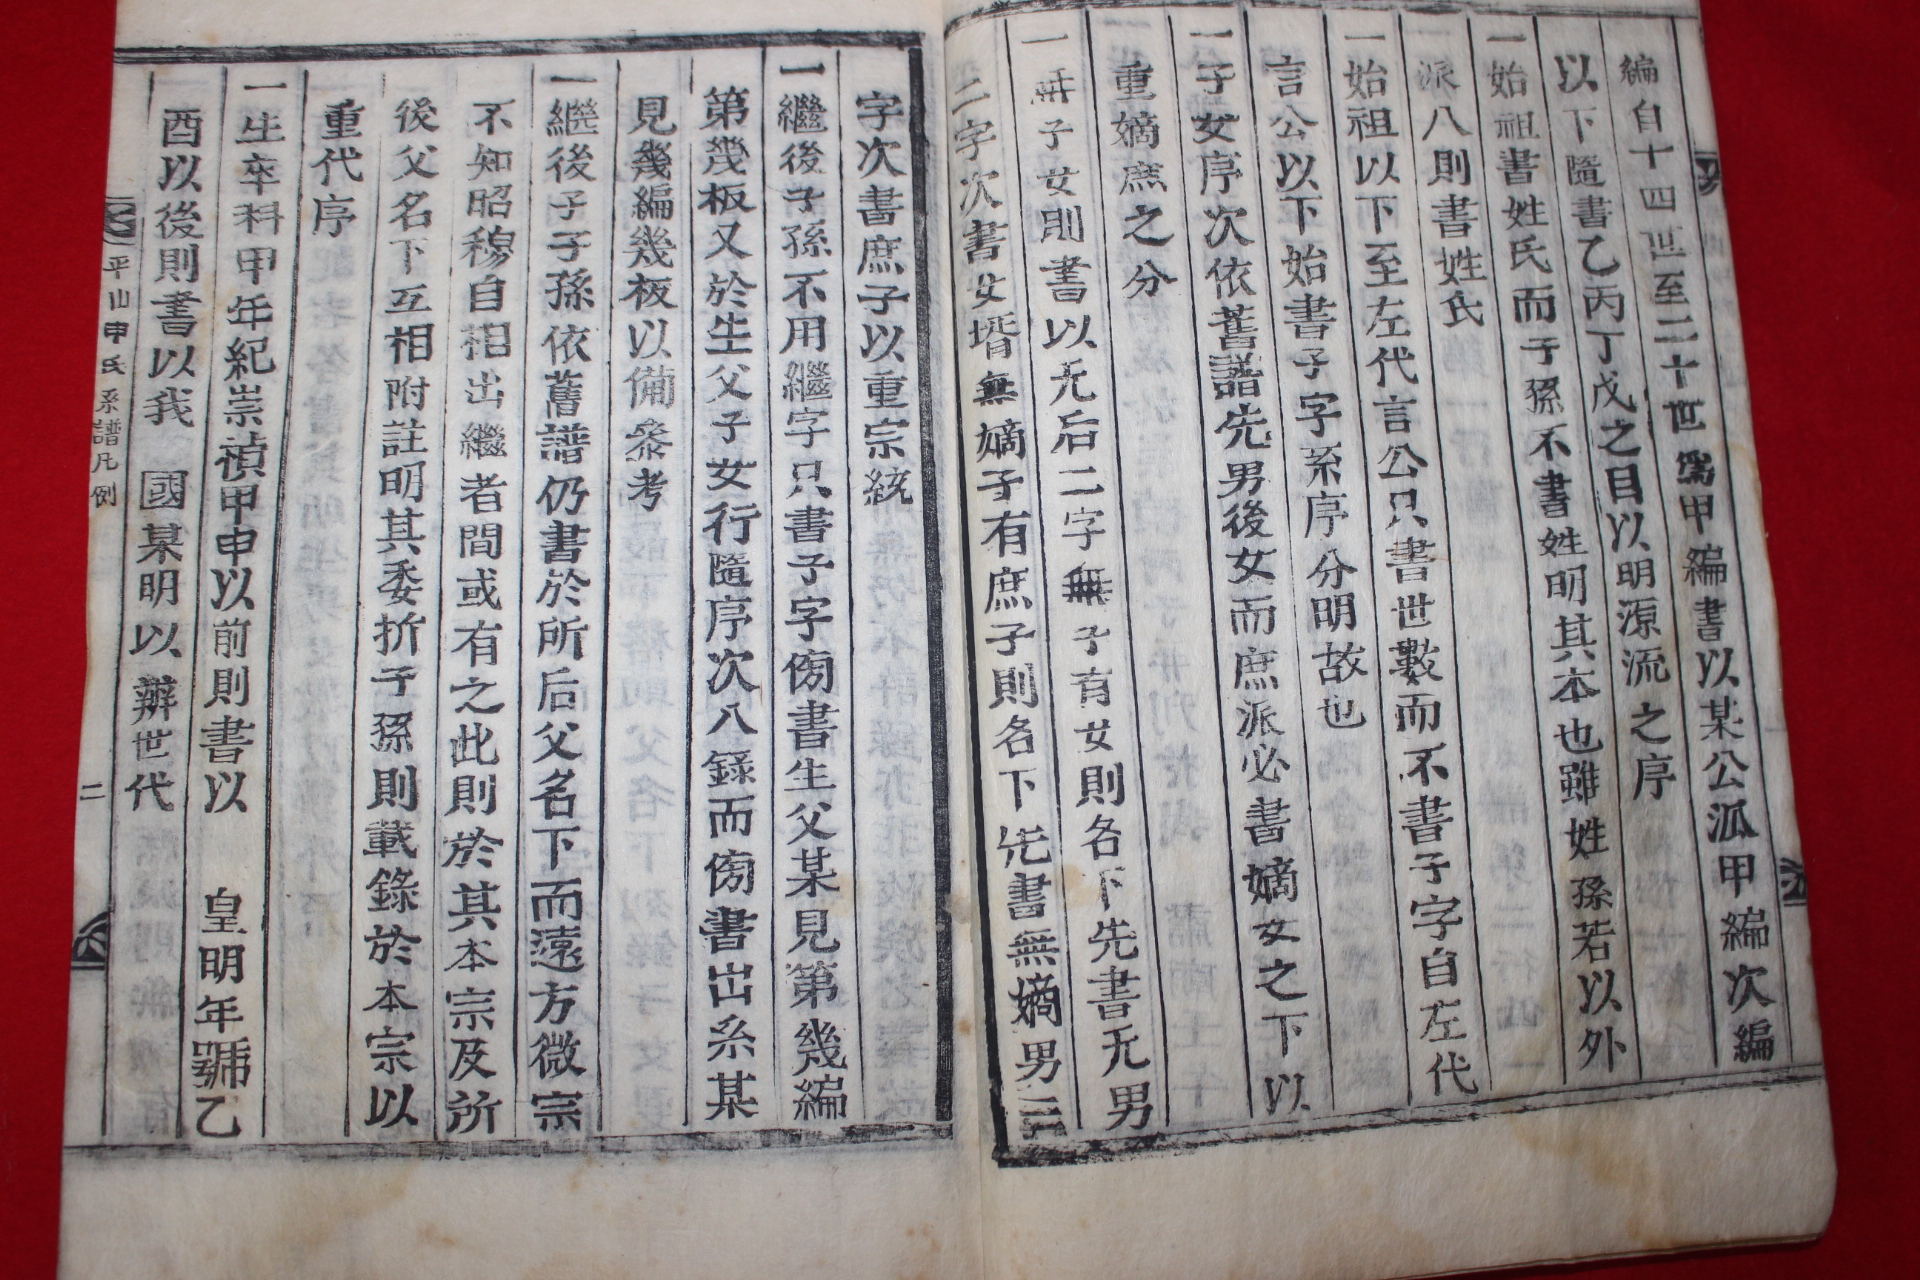 編自十四世至二十世爲甲編書以某公派甲編次編
以下隨書乙丙丁戊之目以明源流之序
一始祖書姓氏而子孫不書姓明其本也雖姓孫若以外
派入則書姓氏
一始祖以下至左代言公只書世數而不書子字自左代
言公以下始書子字系序分明故也
一子女序次依舊譜先男後女而庶派必書嫡女之下以
重嫡庶之分
一無子女則書以无后二字無子有女則名下先書无男
二字次書女壻無嫡子有庶子則名下先書無嫡男三
字次書庶子以重宗統
一繼後子孫不用繼字只書子字傍書生父某見第幾編
第幾板又於生父子女行隨序次入錄而傍書出系某
見幾編幾板以備參考
一継後子孫依舊譜仍書於所后父名下而遠方微宗
不知昭穆自相出繼者間或有之此則於其本宗及所
後父名下互相附註明其委折子孫則載錄於本宗以
重代序
一生卒科甲年紀崇禎甲申以前則書以 皇明年號乙
酉以後則書以我 國某明以辨世代
平山申氏系譜凡例
二